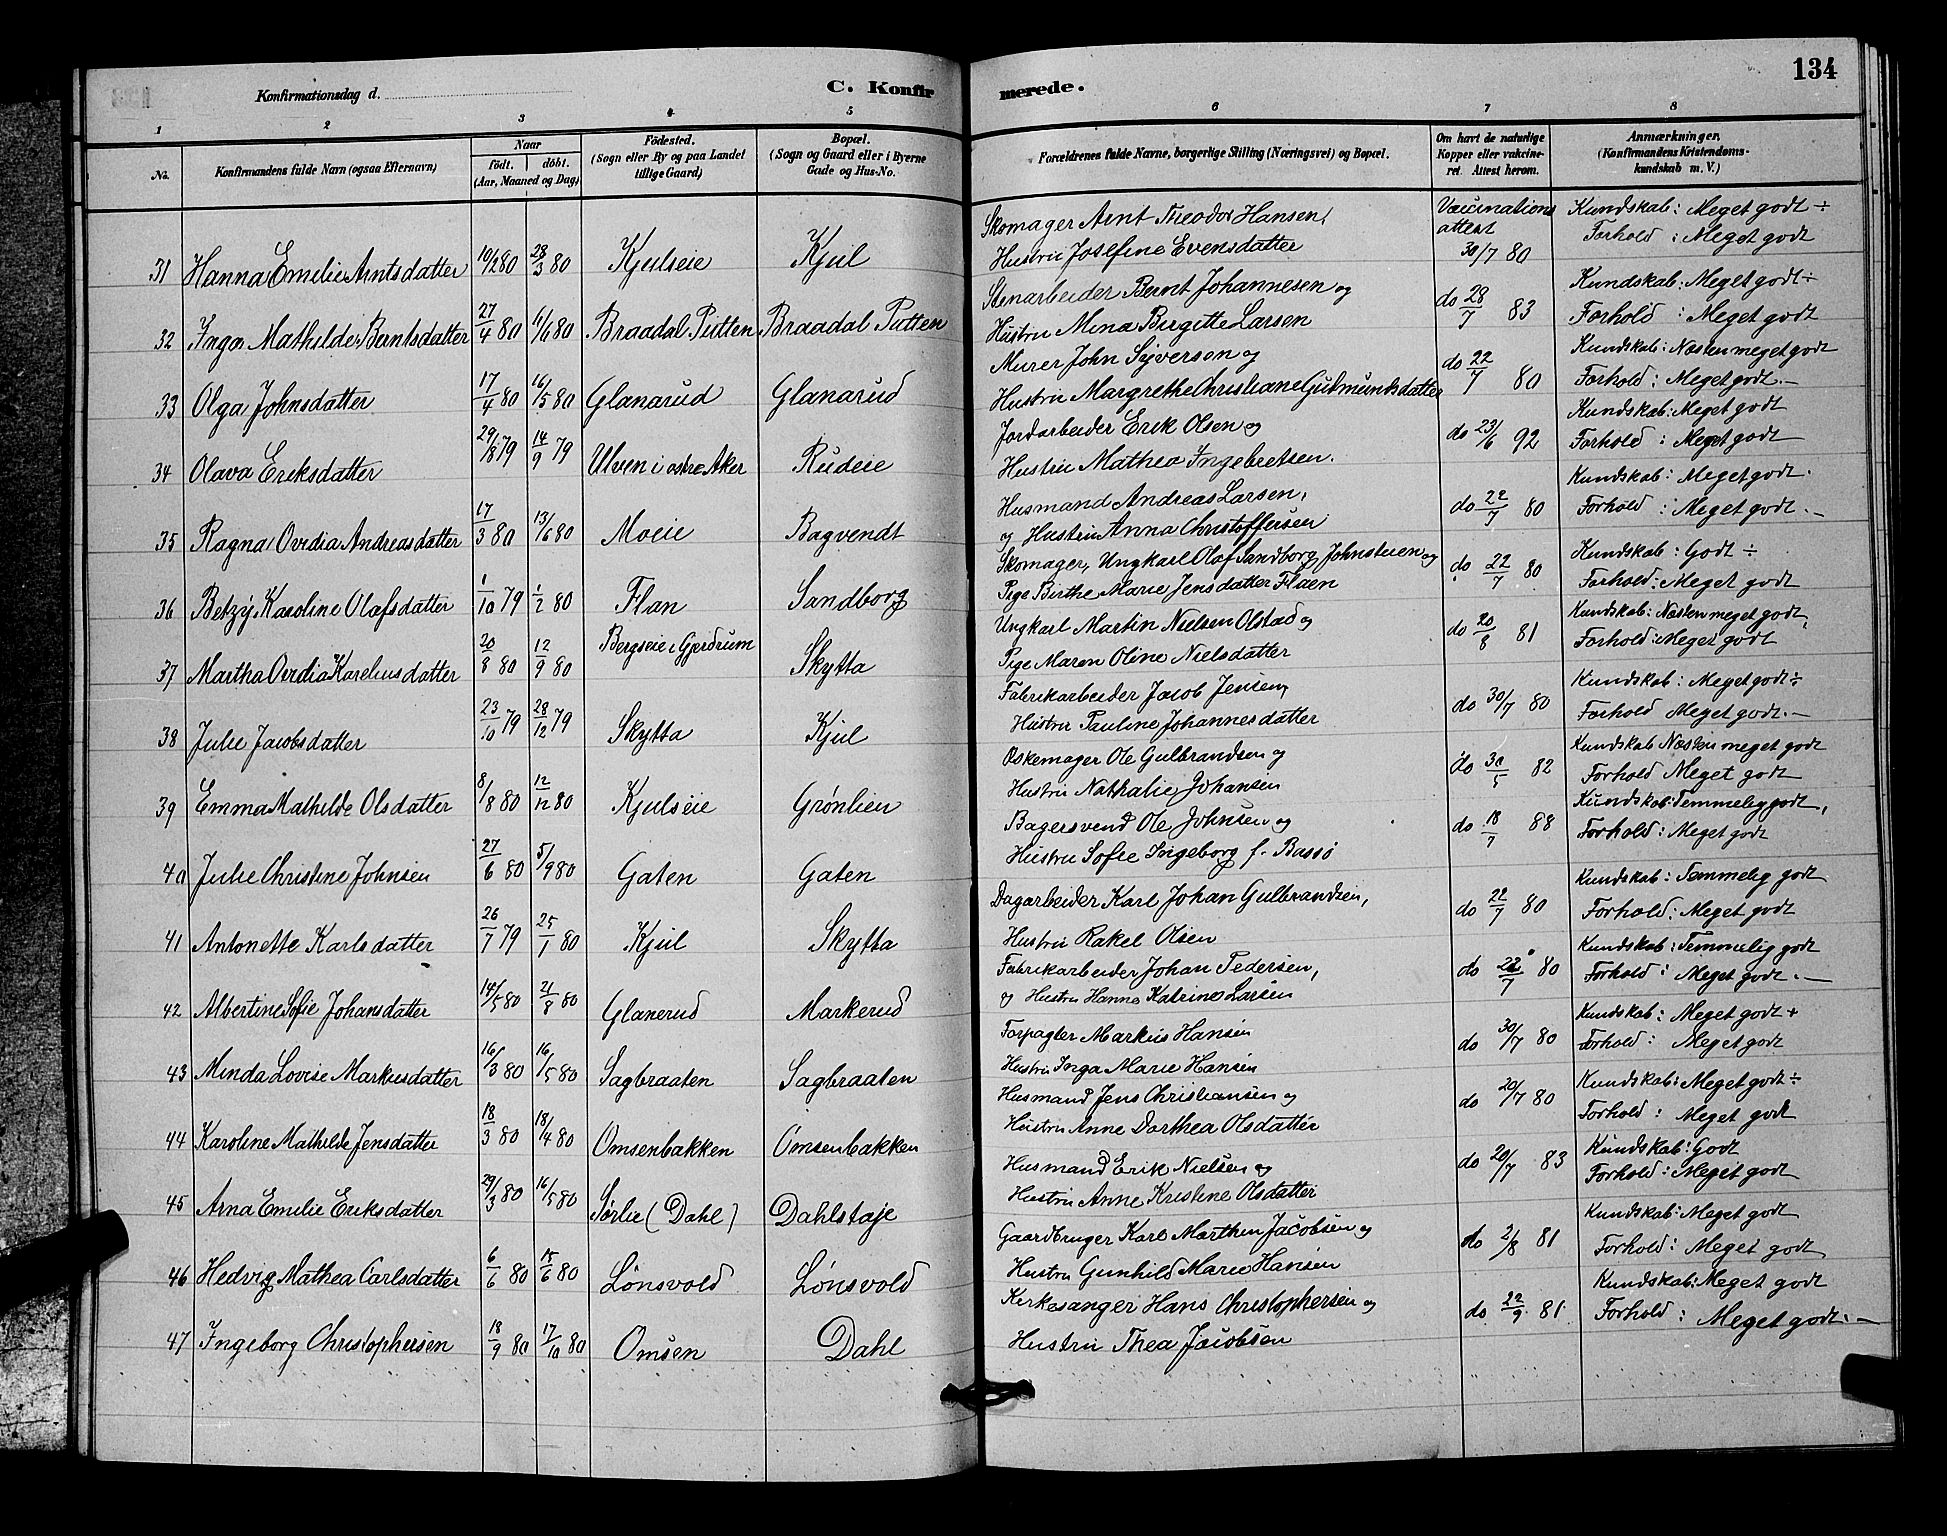 134
Konfirmationsdag d.
C. Konfirmerede.
1 2 3 4 5 6 7 8
No. Konfirmandens fulde Navn (ogsaa Efternavn) Naar født. døbt. (Aar, Maaned og Dag) Fødested. (Sogn eller By og paa Landet tillige Gaard) Bopæl. (Sogn og Gaard eller i Byerne Gade og Hus-No. Forældrenes fulde Navne, borgerlige Stilling (Næringsvei) og Bopæl. Om havt de naturlige Kopper eller vakcineret. Attest herom. Anmærkninger. (Konfirmandens Kristendomskundskab m. V.)
31 Hanna Emilie Arntsdatter 10/2 80 28/3 80 Kjulseie Kjul Skomager Arnt Theodor Hansen, Vaccinations attest Kundskab: Meget godt ÷
Hustru Josefine Evensdatter 30/7 80 Forhold: Meget godt
32 Inga Mathilde Berntsdatter 27/4 80 6/6 80 Braadal Putten Braadal Putten Stenarbeider Bernt Johannesen og do 28/7 83 Kundskab: Meget godt ÷
Hustru Mina Birgitte Larsen Forhold: Meget godt
33 Olga Johnsdatter 17/4 80 16/5 80 Glanarud Glanarud Murer John Syversen og do 22/7 80 Kundskab: Næsten meget godt
Hustru Margrethe Christiane Gudmundsdatter Forhold: Meget godt.—
34 Olava Eriksdatter 29/8 79 14/9 79 Ulven i østre Aker Rudeie Jordarbeider Erik Olsen og do 23/6 92 Kundskab: Meget godt
Hustru Mathea Ingebretsen. Forhold: Meget godt
35 Ragna Ovidia Andreasdatter 17/3 80 13/6 80 Moeie Bagvendt Husmand Andreas Larsen, do 22/7 80 Kundskab: Meget godt.
og Hustru Anna Christoffersen Forhold: Meget godt.—
36 Betzy Karoline Olafsdatter 1/10 79 1/2 80 Flan Sandborg Skomager, Ungkarl Olaf Sandborg, Johnstuen og do 22/7 80 Kundskab: Godt ÷
Pige Birthe Marie Jensdatter Flaen Forhold: Meget godt
37 Martha Ovidia Kareliusdatter 20/8 80 12/9 80 Bergseie i Gjerdrum Skytta Ungkarl Martin Nielsen Olstad og do 20/8 81 Kundskab: Næsten meget godt,
Pige Maren Oline Nielsdatter Forhold: Meget godt
38 Julie Jacobsdatter 23/10 79 28/12 79 Skytta Kjul Fabrikarbeider Jacob Jensen, do 30/7 80 Kundskab: Meget godt ÷
Hustru Pauline Johannesdatter Forhold Meget godt.—
39 Emma Mathilde Olsdatter 8/8 80 12/12 80 Kjulseie Grønlien Æskemager Ole Gulbrandsen og do 30/5 82 Kundskab Næsten meget godt
Hustru Nathalie Johansen Forhold Meget godt
40 Julie Christine Johnsen 27/6 80 5/9 80 Gaten Gaten Bagersvend Ole Johnsen og do 18/7 88 Kundskab: Temmelig godt,
Hustru Sofie Ingeborg f. Bassø Forhold: Meget godt
41 Antonette Karlsdatter 26/7 79 25/1 80 Kjul Skytta Dagarbeider Karl Johan Gulbrandsen, do 22/7 80 Kundskab: Temmelig godt
Hustru Rakel Olsen Forhold: Meget godt
42 Albertine Sofie Johansdatter 14/5 80 21/8 80 Glanerud Markerud Fabrikarbeider Johan Pedersen, do 22/7 80 Kundskab: Temmelig godt
og Hustru Hanna Katrine Larsen Forhold: Meget godt.—
43 Minda Lovise Markusdatter 16/3 80 16/5 80 Sagbraaten Sagbraaten Forpagter Markus Hansen do 30/7 80 Kundskab: Meget godt +
Hustru Inga Marie Hansen Forhold: Meget godt
44 Karoline Mathilde Jensdatter 18/3 80 18/4 80 Omsenbakken Omsenbakken Husmand Jens Christiansen og do 20/7 80 Kundskab: Meget godt ÷
Hustru Anne Dorthea Olsdatter Forhold: Meget godt
45 Arna Emilie Eriksdatter 29/3 80 16/5 80 Sørlie (Dahl) Dahlstaje Husmand Erik Nielsen og do 20/7 83 Kundskab: Godt
Hustru Anne Kristine Olsdatter Forhold: Meget godt
46 Hedvig Mathea Carlsdatter 6/6 80 15/6 80 Lønsvold Lønsvold Gaardbruger Karl Marthin Jacobsen og do 2/8 81 Kundskab: Meget godt
Hustru Gunhild Marie Hansen Forhold: Meget godt
47 Ingeborg Christophersen 18/9 80 17/10 80 Omsen Dahl Kirkesanger Hans Christophersen og do 22/9 81 Kundskab: Meget godt
Hustru Thea Jacobsen Forhold: Meget godt.—